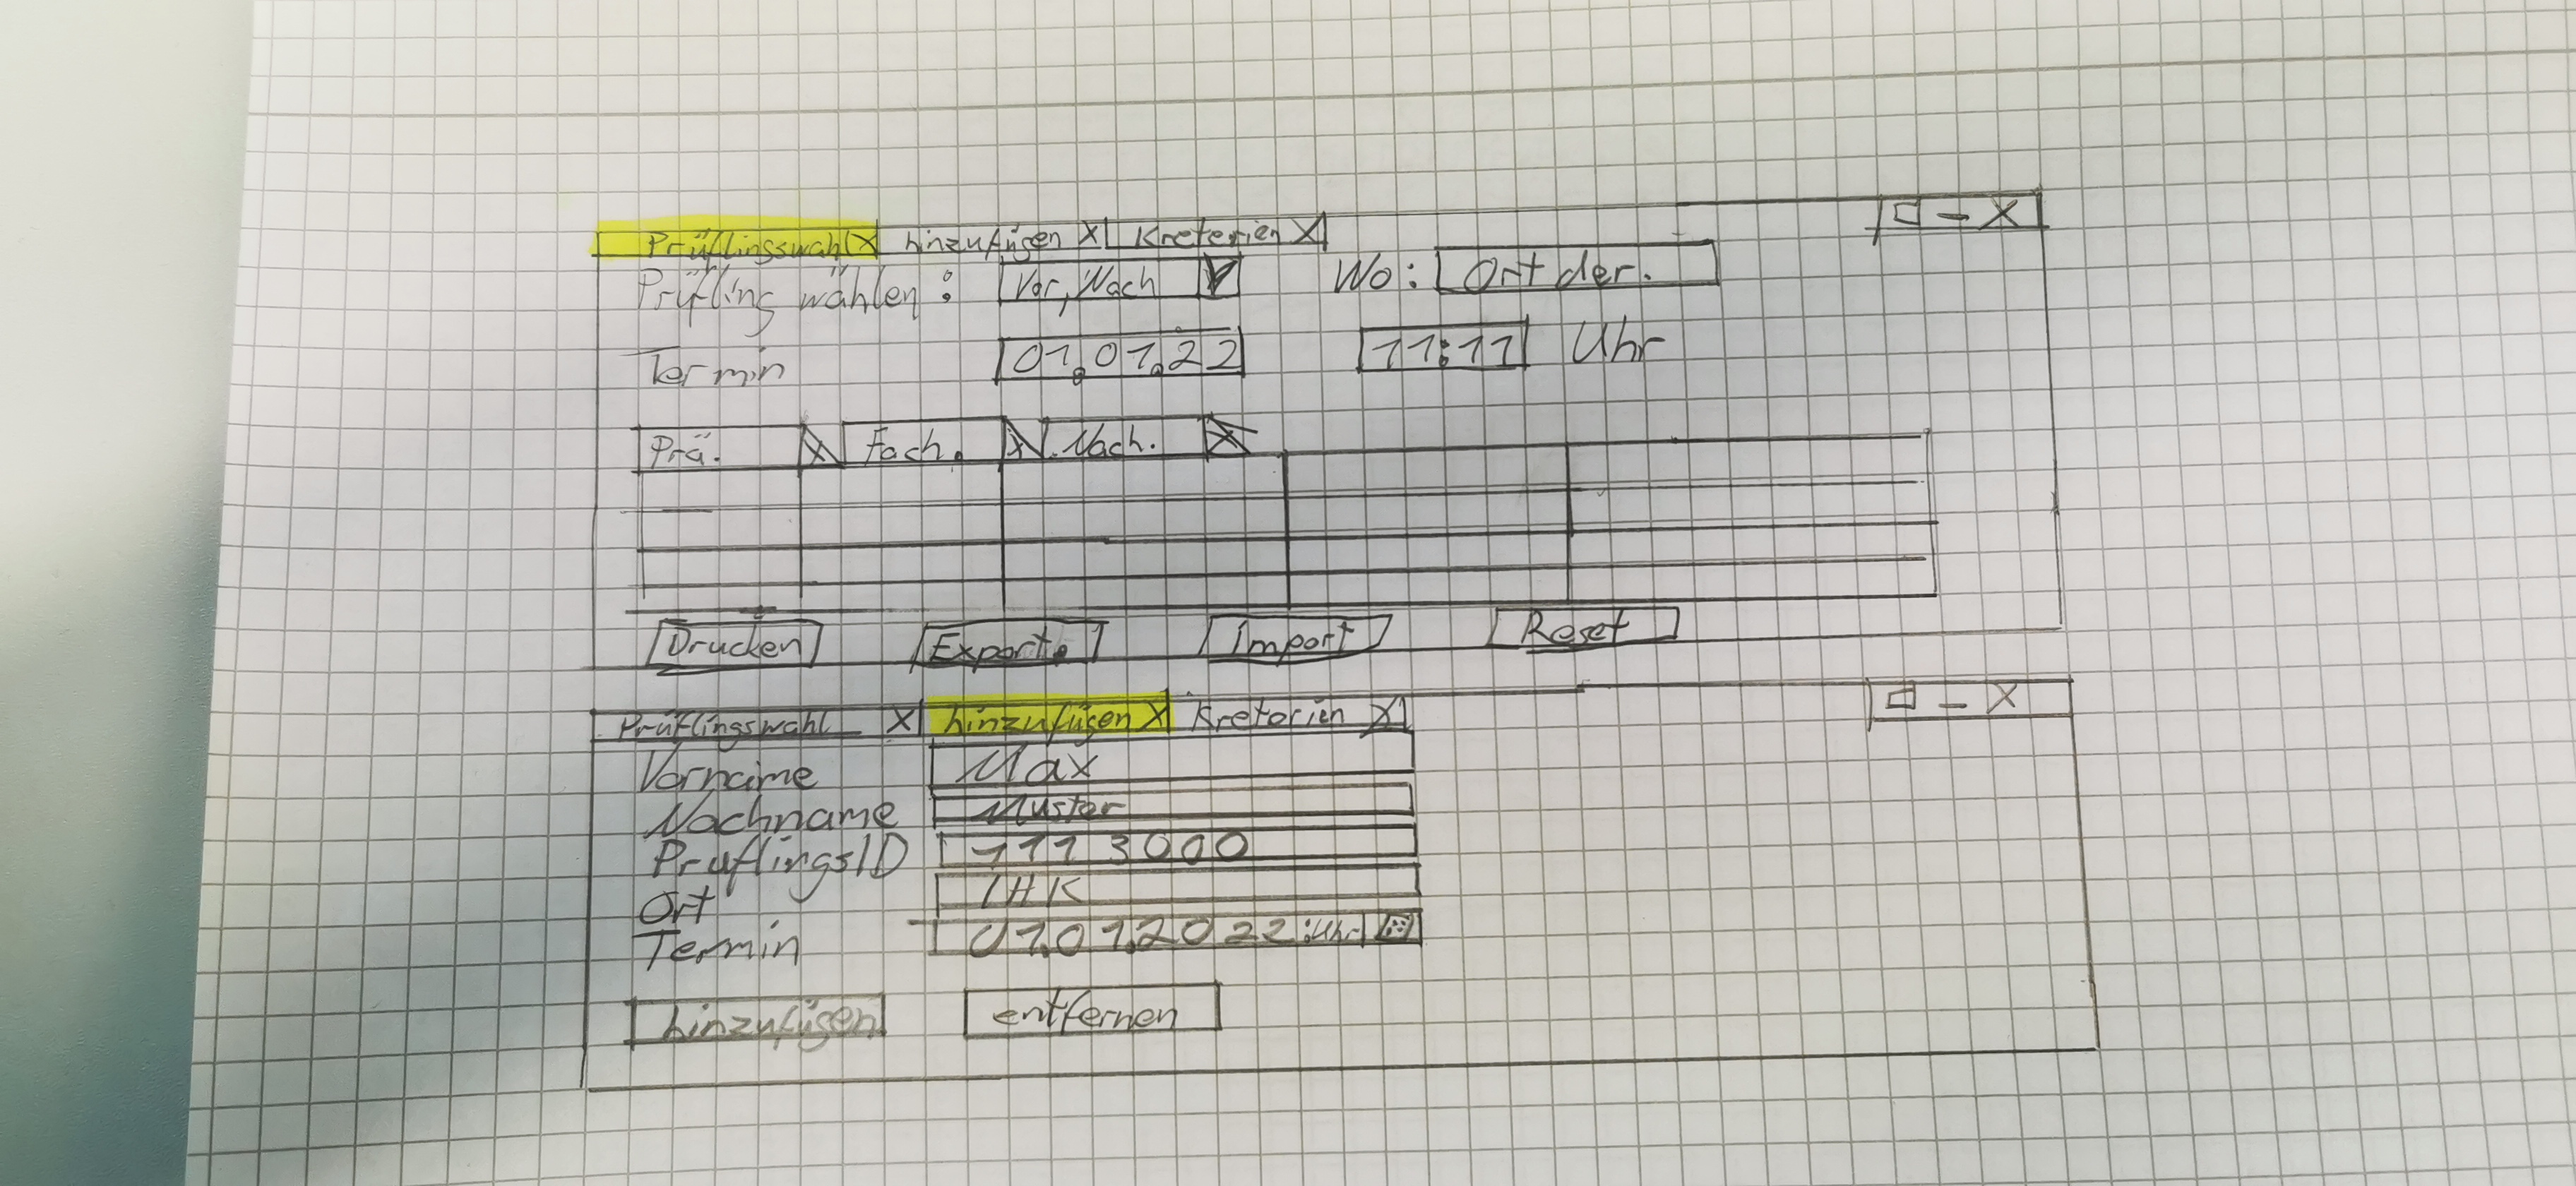 Prüflingswahl X hinzufügen X Kreterien X □ - X
Prüfling wählen: Vor, Nach Wo: Ort der.
Termin 01.01.22 11:11 Uhr
Prä. X Fach. X Nach. X
Drucken Export. Import Reset
Prüflingswahl X hinzufügen X Kreterien X □ - X
Vorname Max
Nachname Muster
PrüflingsID 111 3000
Ort IHK
Termin 01.01.2022 :Uhr
hinzufügen entfernen